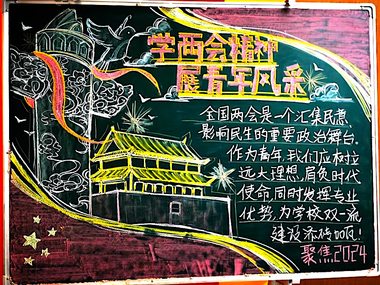 学两会精神
展青年风采
全国两会是一个汇集民意
影响民生的重要政治舞台.
作为青年,我们应树立
远大理想,肩负时代
使命,同时发挥专业
优势,为学校双一流
建设添砖加瓦!
聚焦2024